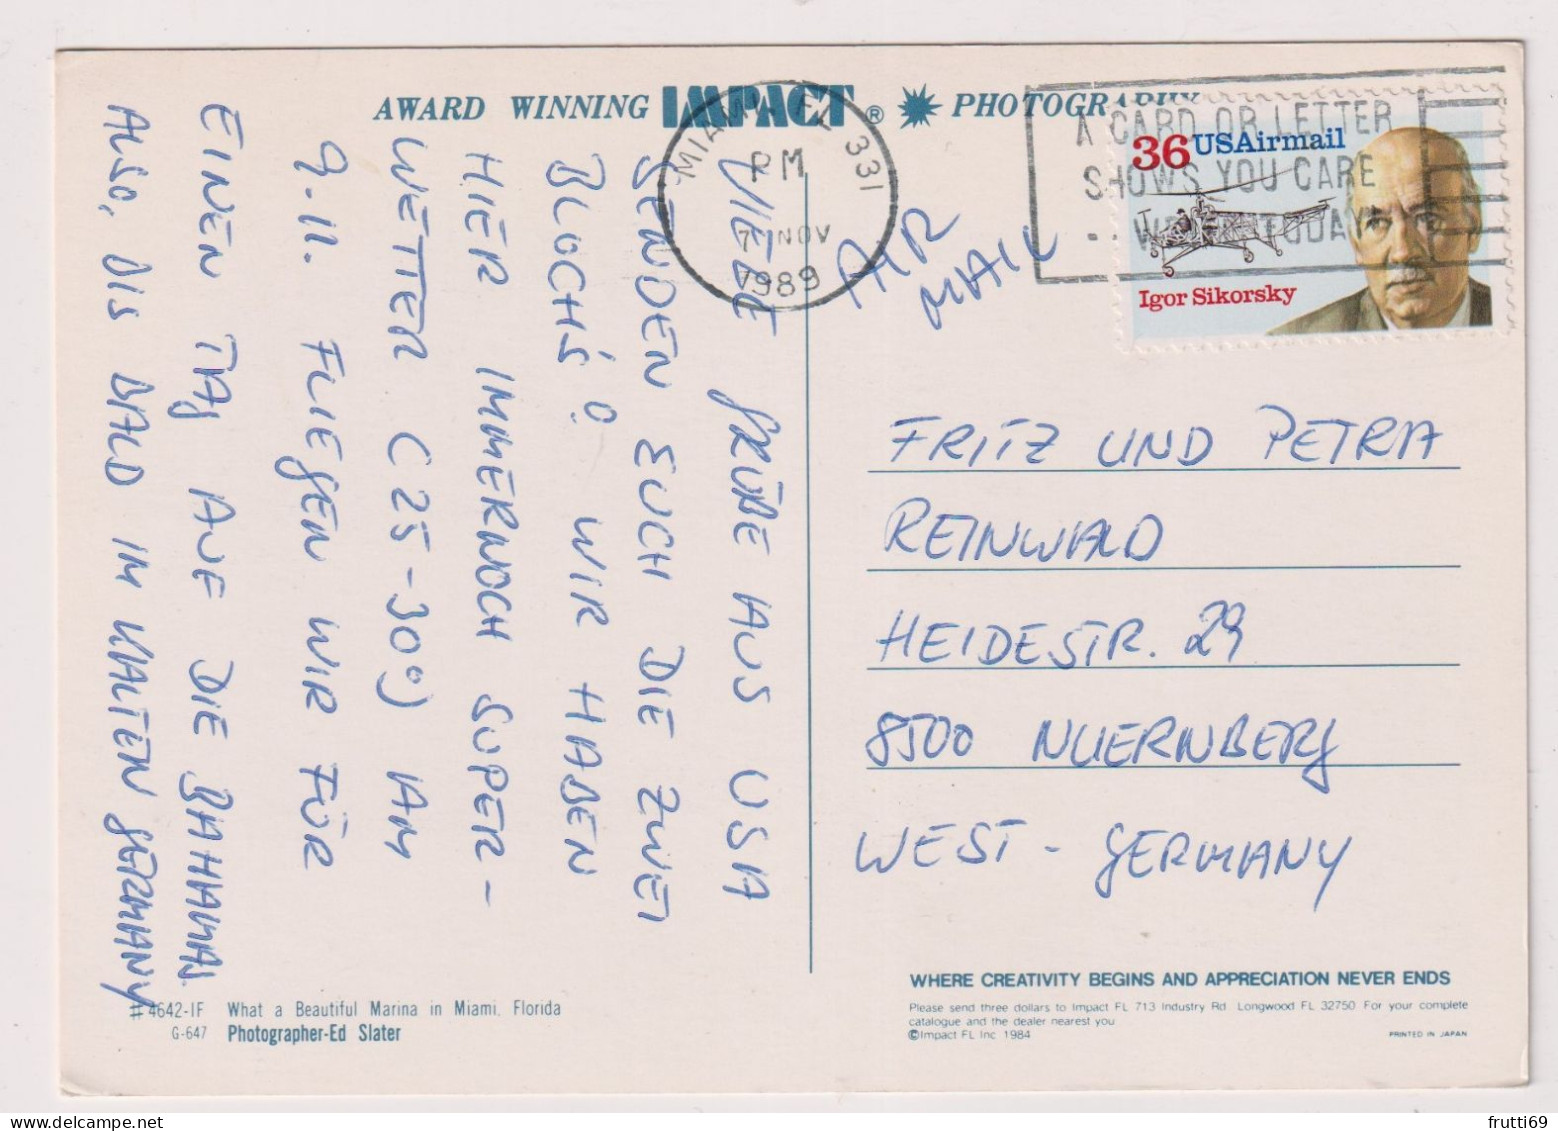 AWARD WINNING IMPACT® PHOTOGRAPHY
MIAMI FL 331
PM
7 NOV
1989
A CARD OR LETTER
SHOWS YOU CARE
WRITE TODAY!
36 USAirmail
Igor Sikorsky
AIR
MAIL
VIELE GRÜßE AUS USA
SENDEN EUCH DIE ZWEI
BLOCH'S! WIR HABEN
HIER IMMERNOCH SUPER-
WETTER (25-30°) AM
9.11. FLIEGEN WIR FÜR
EINEN TAG AUF DIE BAHAMAS.
ALSO, BIS BALD IM KALTEN GERMANY
FRITZ UND PETRA
REINWALD
HEIDESTR. 29
8500 NUERNBERG
WEST-GERMANY
#4642-IF What a Beautiful Marina in Miami, Florida
G-647 Photographer-Ed Slater
WHERE CREATIVITY BEGINS AND APPRECIATION NEVER ENDS
Please send three dollars to Impact FL 713 Industry Rd Longwood FL 32750 For your complete
catalogue and the dealer nearest you
©Impact FL Inc 1984
PRINTED IN JAPAN
frutti69